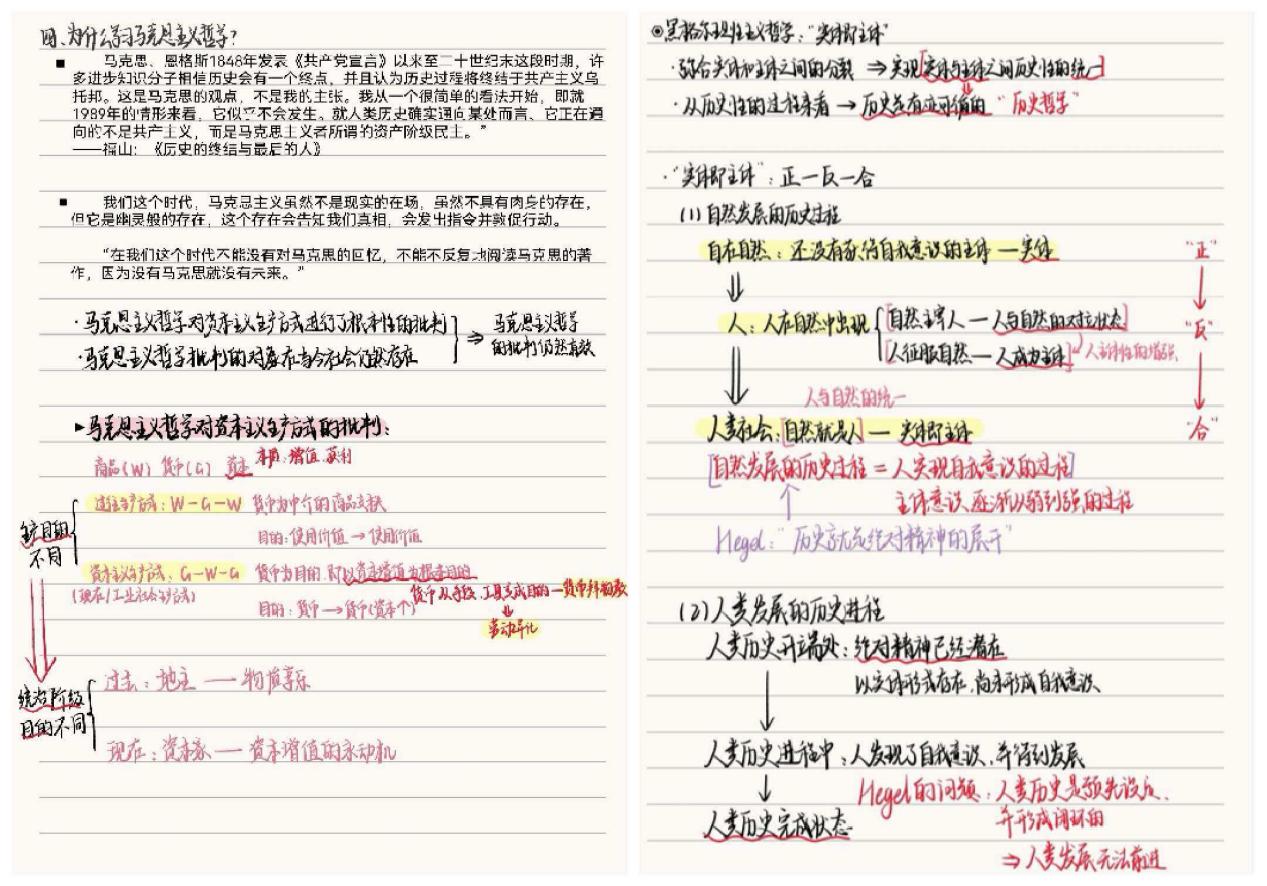 四、为什么学习马克思主义哲学？
■ 马克思、恩格斯1848年发表《共产党宣言》以来至二十世纪末这段时期，许
多进步知识分子相信历史会有一个终点，并且认为历史过程将终结于共产主义乌
托邦。这是马克思的观点，不是我的主张。我从一个很简单的看法开始，即就
1989年的情形来看，它似乎不会发生。就人类历史确实通向某处而言、它正在通
向的不是共产主义，而是马克思主义者所谓的资产阶级民主。”
——福山：《历史的终结与最后的人》
■ 我们这个时代，马克思主义虽然不是现实的在场，虽然不具有肉身的存在，
但它是幽灵般的存在，这个存在会告知我们真相，会发出指令并敦促行动。
“在我们这个时代不能没有对马克思的回忆，不能不反复地阅读马克思的著
作，因为没有马克思就没有未来。”
·马克思主义哲学对资本主义生产方式进行了根本性的批判
·马克思主义哲学批判的对象在当今社会仍然存在
⇒ 马克思主义哲学
的批判仍然有效
▸马克思主义哲学对资本主义生产方式的批判：
商品(W) 货币(G) 资本 本质：增值、获利
生产目的
不同
过往生产方式：W－G－W 货币为中介的商品交换
目的：使用价值 → 使用价值
资本主义生产方式：G－W－G 货币为目的，即以资本增值为根本目的
(现在/工业社会生产方式)
货币从手段、工具变成目的—货币拜物教
目的：货币 → 货币(资本个)
⇓
劳动异化
统治阶级
目的不同
过去：地主 —— 物质享乐
现在：资本家 —— 资本增值的永动机
◉黑格尔理性主义哲学：“实体即主体”
·弥合实体和主体之间的分裂 ⇒ 实现[实体与主体之间历史性的统一]
·从历史性的过程来看 → 历史是有迹可循的 “历史哲学”
·“实体即主体”：正－反－合
(1)自然发展的历史过程
自在自然：还没有获得自我意识的主体 — 实体 “正”
⇓
人：人在自然中出现 [自然主宰人 — 人与自然的对立状态] “反”
[人征服自然 — 人成为主体] 人主体性的增强
⇓
人与自然的统一
人类社会：[自然就是人] — 实体即主体 “合”
[自然发展的历史过程 = 人实现自我意识的过程]
主体意识逐渐从弱到强的过程
↑
Hegel：“历史就是绝对精神的展开”
(2)人类发展的历史进程
人类历史开端处：绝对精神已经潜在
以实体形式存在，尚未形成自我意识
↓
人类历史进程中：人发现了自我意识，并得到发展
↓
Hegel的问题：人类历史是预先设定、
人类历史完成状态
并形成闭环的
⇒ 人类发展无法前进